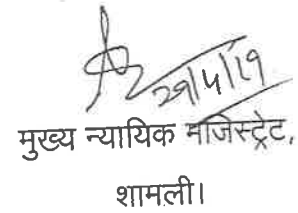 29/4/19
मुख्य न्यायिक मजिस्ट्रेट,
शामली।